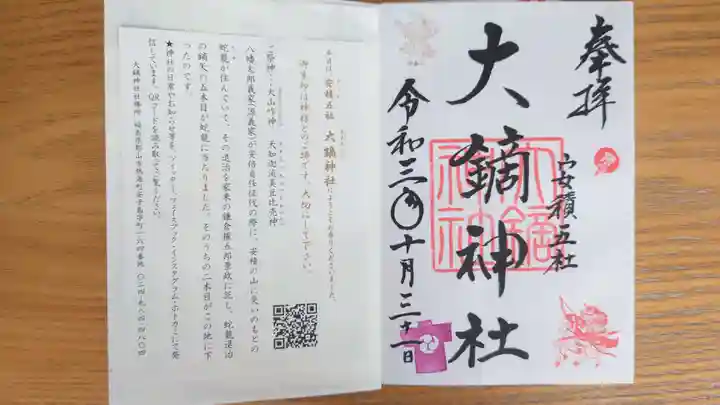 奉拝
安積五社
大鏑神社
令和三年十月三十一日
本日は、安積五社 大鏑神社にようこそお参りくださいました。
御朱印は神様とのご縁です。大切にして下さい。
ご祭神…大山咋神 天知迦流美豆比売神
八幡太郎義家(源義家)が安倍貞任征伐の際に、安積の山に災いのもとの
蛇龍が住んでいて、その退治を家来の鎌倉権五郎景政に託し、蛇龍退治
の鏑矢の五本目が蛇龍に当たりました。そのうちの二本目がこの地に下
ったのです。
★神社の日常やお知らせ等を、ツイッター、フェイスブック・インスタグラム・ホトカミにて発
信しています。QRコードを読み取ってご覧ください。
大鏑神社社務所 福島県郡山市熱海町安子島字町一六四番地 〇二四-九八四-四八〇四